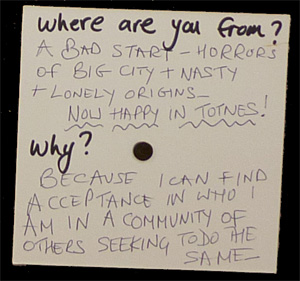 where are you from?
A BAD START – HORRORS
OF BIG CITY + NASTY
+ LONELY ORIGINS –
NOW HAPPY IN TOTNES!
why?
BECAUSE I CAN FIND
ACCEPTANCE IN WHO I
AM IN A COMMUNITY OF
OTHERS SEEKING TO DO THE
SAME –